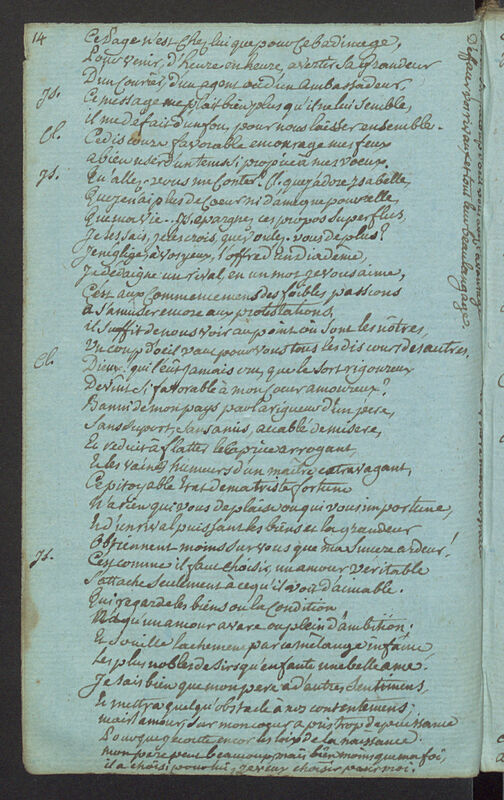 14
Ce Page n'est chez lui que pour ce badinage,
Pour venir, d'heure en heure, avertir sa grandeur
D'un Courrier, d'un agent ou d'un ambassadeur.
Js. Ce message me plait bien plus qu'il ne lui semble,
il me defait d'un fou, pour nous laisser ensemble.
Cl. Ce discours favorable encourage mes feux
a bien user d'un tems si propice à mes voeux.
Js. Qu'allez-vous me conter? Cl. que j'adore Isabelle,
Que je n'ai plus de Coeur ni d'ame que pour elle,
Que ma vie... Js. epargnez ces propos superflus,
Je les sais, je les crois, que voulez-vous de plus?
Je neglige, à vos yeux, l'offre d'un diademe,
Je dédaigne un rival, en un mot je vous aime,
C'est aux commencemens des foibles passions
a s'amuser encore aux protestations,
il suffit de nous voir au point où sont les nôtres,
Un coup d'oeil vaut pour vous tous les discours des autres.
Cl. Dieux, qui l'eut jamais cru, que le sort rigoureux
Devint si favorable à mon coeur amoureux?
Banni de mon pays par la rigueur d'un pere,
Sans suport, sans amis, accablé de misere,
Et reduit à flatter le caprice arrogant,
Et les vaines humeurs d'un maître extravagant,
Ce pitoyable Etat de ma triste fortune
N'a rien qui vous deplaise ou qui vous importune,
Et d'un rival puissant les biens et la grandeur
Obtiennent moins sur vous que ma sincere ardeur!
Js. C'est comme il faut choisir, un amour veritable
S'attache seulement à ce qu'il voit d'aimable.
Qui regarde les biens ou la condition
N'a qu'un amour avare ou plein d'ambition;
Et souille lachement par ce mélange infame
Les plus nobles desirs qu'enfante une belle ame.
Je sais bien que mon pere a d'autres sentimens,
Et mettra quelqu'obstacle à nos contentemens;
mais l'amour sur mon coeur a pris trop de puissance
Pour que j'ecoute encor les loix de la naissance:
mon pere peut beaucoup, mais bien moins que ma foi,
il a choisi pour lui, je veux choisir pour moi.